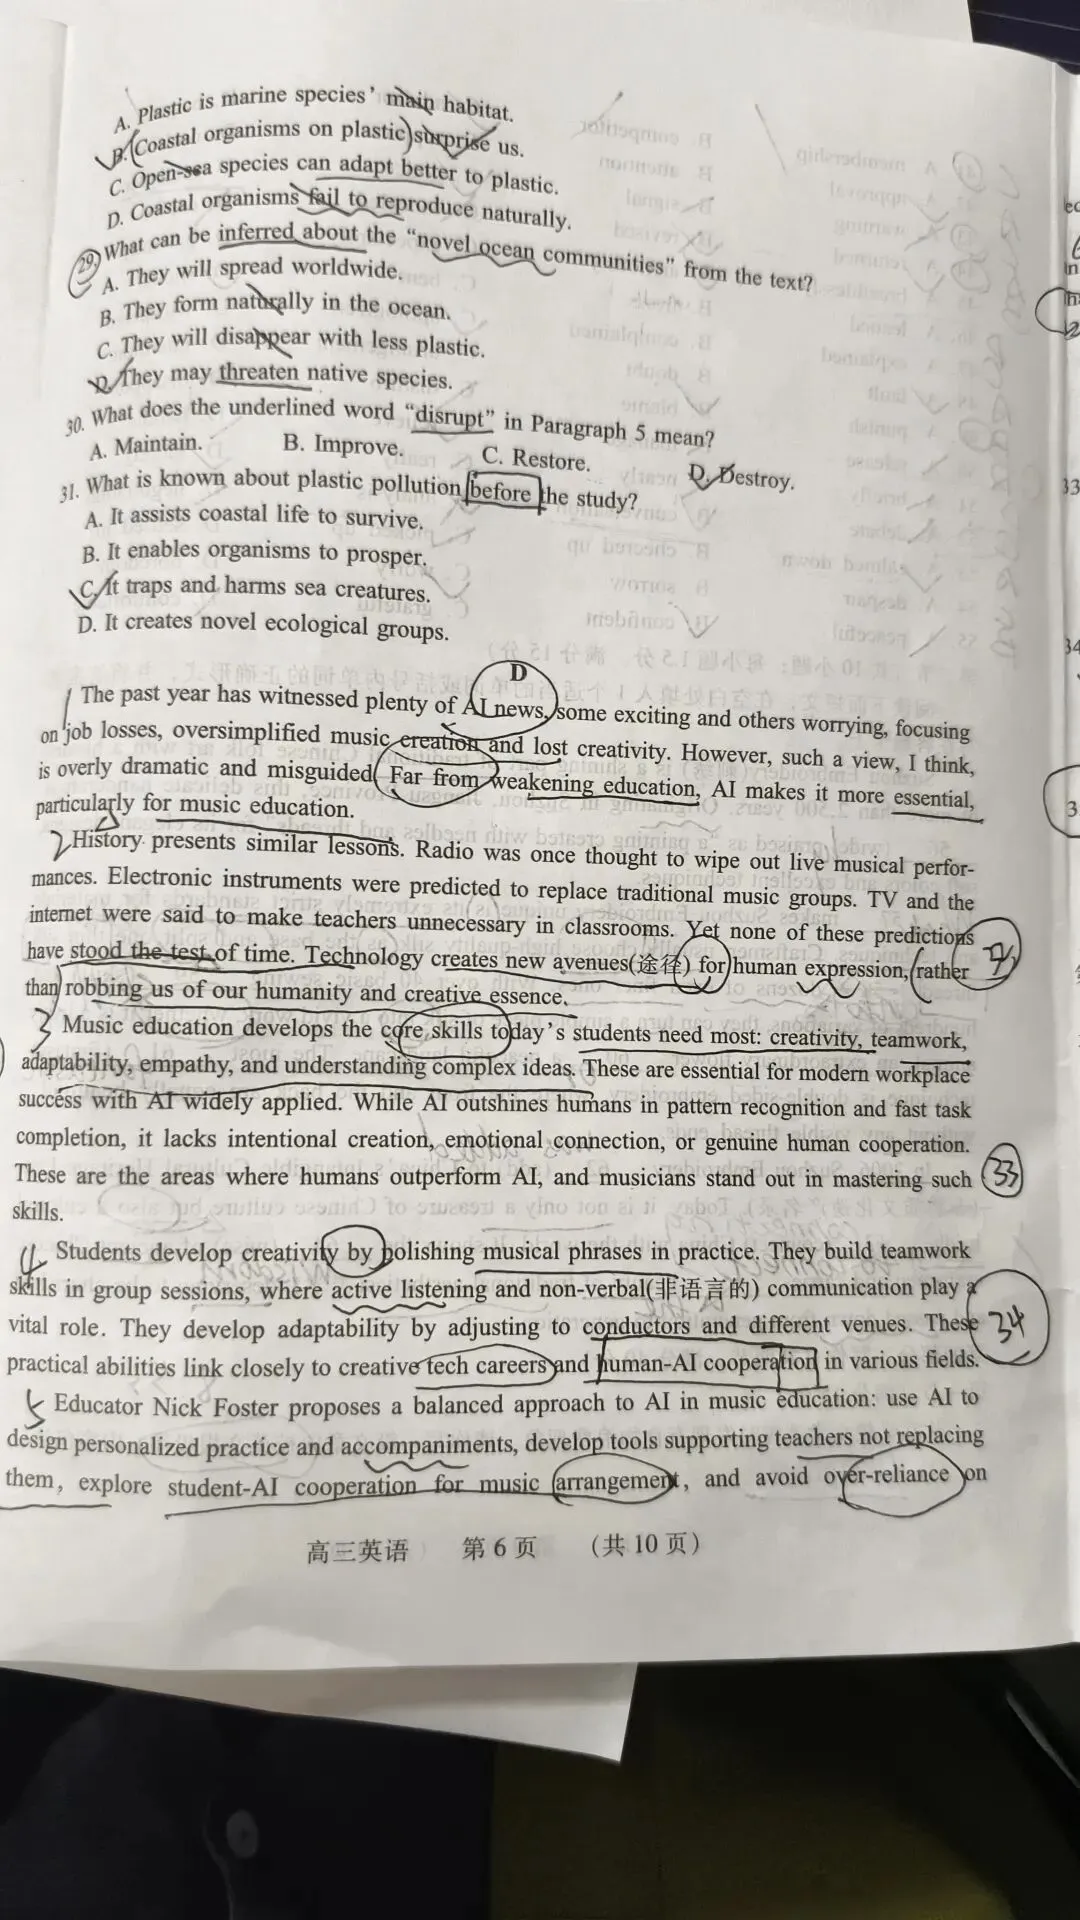 A. Plastic is marine species' main habitat.
B. Coastal organisms on plastic surprise us.
C. Open-sea species can adapt better to plastic.
D. Coastal organisms fail to reproduce naturally.
29. What can be inferred about the “novel ocean communities” from the text?
A. They will spread worldwide.
B. They form naturally in the ocean.
C. They will disappear with less plastic.
D. They may threaten native species.
30. What does the underlined word “disrupt” in Paragraph 5 mean?
A. Maintain. B. Improve. C. Restore. D. Destroy.
31. What is known about plastic pollution before the study?
A. It assists coastal life to survive.
B. It enables organisms to prosper.
C. It traps and harms sea creatures.
D. It creates novel ecological groups.
D
1 The past year has witnessed plenty of AI news, some exciting and others worrying, focusing
on job losses, oversimplified music creation and lost creativity. However, such a view, I think,
is overly dramatic and misguided. Far from weakening education, AI makes it more essential,
particularly for music education.
2 History presents similar lessons. Radio was once thought to wipe out live musical perfor-
mances. Electronic instruments were predicted to replace traditional music groups. TV and the
internet were said to make teachers unnecessary in classrooms. Yet none of these predictions
have stood the test of time. Technology creates new avenues(途径) for human expression, rather
than robbing us of our humanity and creative essence.
3 Music education develops the core skills today's students need most: creativity, teamwork,
adaptability, empathy, and understanding complex ideas. These are essential for modern workplace
success with AI widely applied. While AI outshines humans in pattern recognition and fast task
completion, it lacks intentional creation, emotional connection, or genuine human cooperation.
These are the areas where humans outperform AI, and musicians stand out in mastering such 33
skills.
4 Students develop creativity by polishing musical phrases in practice. They build teamwork
skills in group sessions, where active listening and non-verbal(非语言的) communication play a
vital role. They develop adaptability by adjusting to conductors and different venues. These 34
practical abilities link closely to creative tech careers and human-AI cooperation in various fields.
5 Educator Nick Foster proposes a balanced approach to AI in music education: use AI to
design personalized practice and accompaniments, develop tools supporting teachers not replacing
them, explore student-AI cooperation for music arrangement, and avoid over-reliance on
高三英语 第 6 页 (共 10 页)